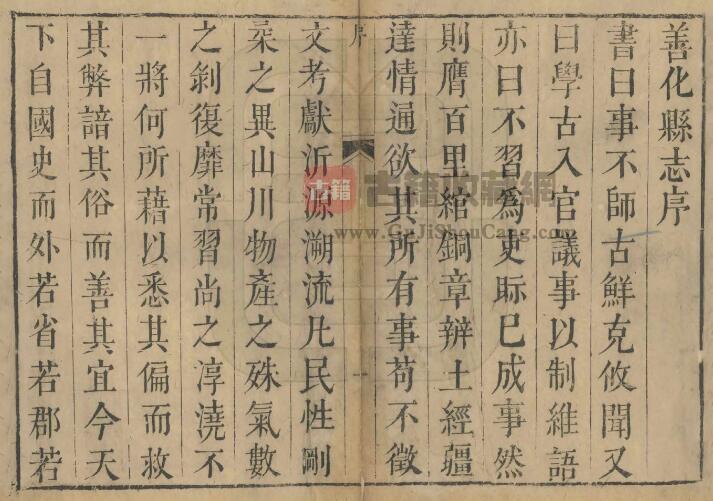 善化縣志序
書曰事不師古鮮克攸聞又
曰學古入官議事以制維語
亦曰不習爲吏眎已成事然
則膺百里綰銅章辦土經疆
達情通欲其所有事苟不徵
序
一
文考獻沂源溯流凡民性剛
柔之異山川物產之殊氣數
之剝復靡常習尚之淳澆不
一將何所藉以悉其偏而救
其弊諳其俗而善其宜今天
下自國史而外若省若郡若
古籍
古籍收藏網
www.GuJiShouCang.com